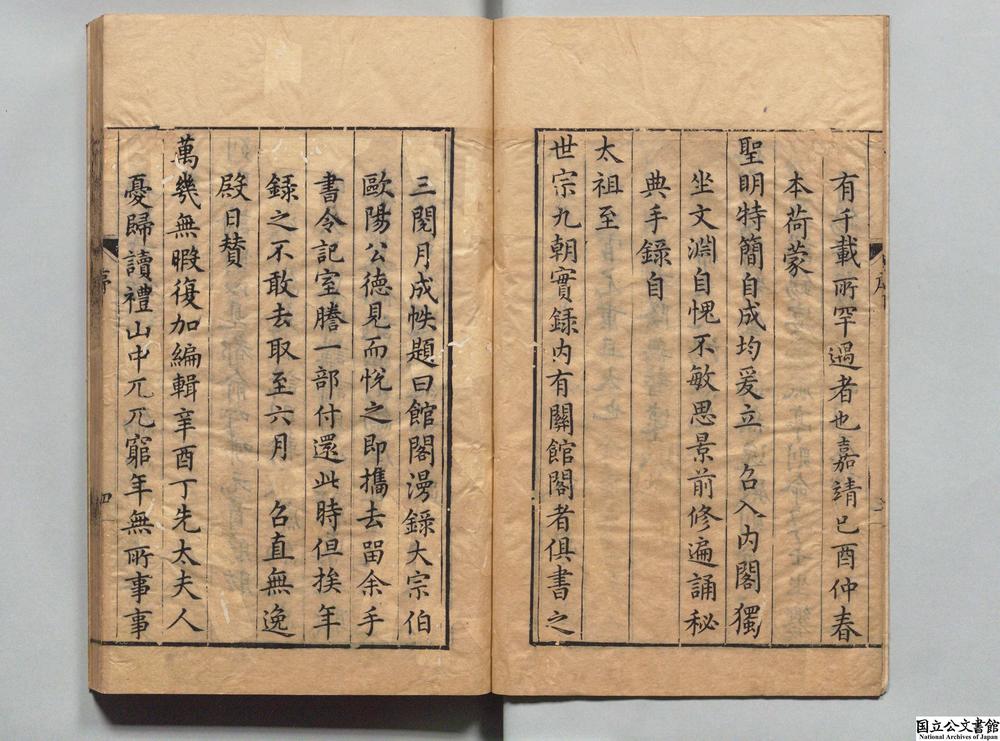 有千載所罕過者也嘉靖已酉仲春
本荷蒙
聖明特簡自成均爰立 召入內閣獨
坐文淵自愧不敏思景前修遍誦秘
典手錄自
太祖至
世宗九朝實録內有關館閣者俱書之
三閱月成帙題曰館閣漫錄大宗伯
歐陽公德見而悅之即攜去留余手
書令記室謄一部付還此時但挨年
錄之不敢去取至六月 召直無逸
殿日賛
萬幾無暇復加編輯辛酉丁先太夫人
憂歸讀禮山中兀兀窮年無所事事
序
四
国立公文書館
National Archives of Japan